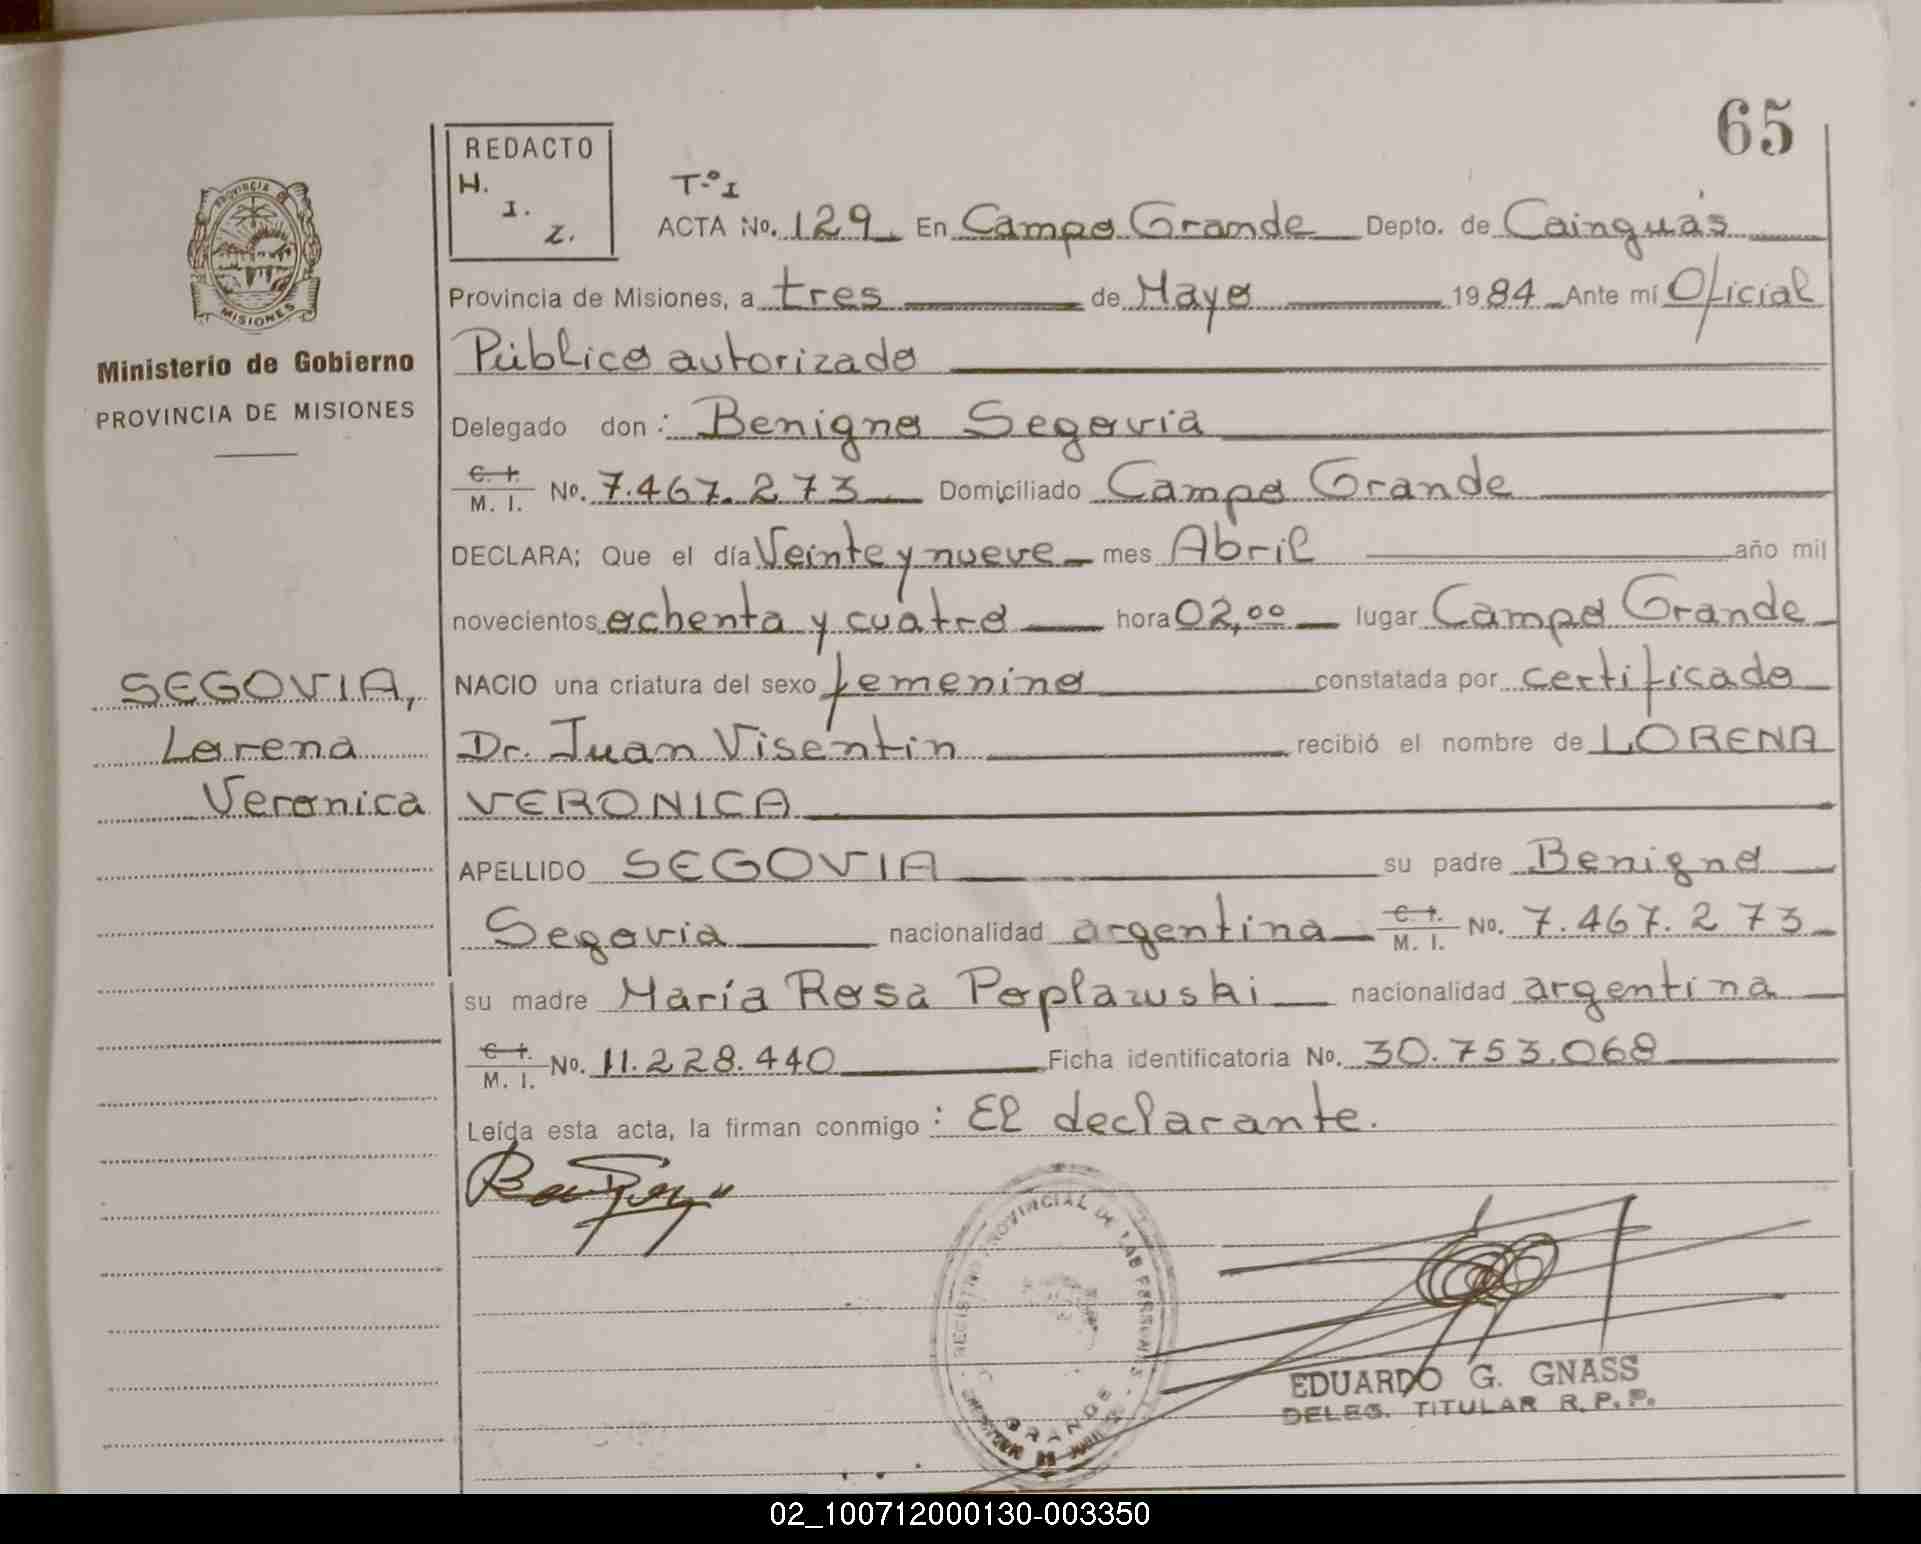 65
REDACTO
H.
I.
Z.
T.º I
ACTA No. 129 En Campo Grande Depto. de Cainguás
Provincia de Misiones, a tres de Mayo 1984 Ante mí Oficial
Público autorizado
Delegado don: Benigno Segovia
C. I.
M. I. No. 7.467.273 Domiciliado Campo Grande
DECLARA; Que el día Veinte y nueve mes Abril año mil
novecientos ochenta y cuatro hora 02,00 lugar Campo Grande
NACIO una criatura del sexo femenino constatada por certificado
Dr. Juan Visentin recibió el nombre de LORENA
VERONICA
APELLIDO SEGOVIA su padre Benigno
Segovia nacionalidad argentina C. I. M. I. No. 7.467.273
su madre María Rosa Poplawski nacionalidad argentina
C. I.
M. I. No. 11.228.440 Ficha identificatoria No. 30.753.068
Leída esta acta, la firman conmigo: El declarante.
PROVINCIA
MISIONES
Ministerio de Gobierno
PROVINCIA DE MISIONES
SEGOVIA,
Lorena
Veronica
REGISTRO PROVINCIAL DE LAS PERSONAS
GRANDE
EDUARDO G. GNASS
DELEG. TITULAR R.P.P.
02_100712000130-003350